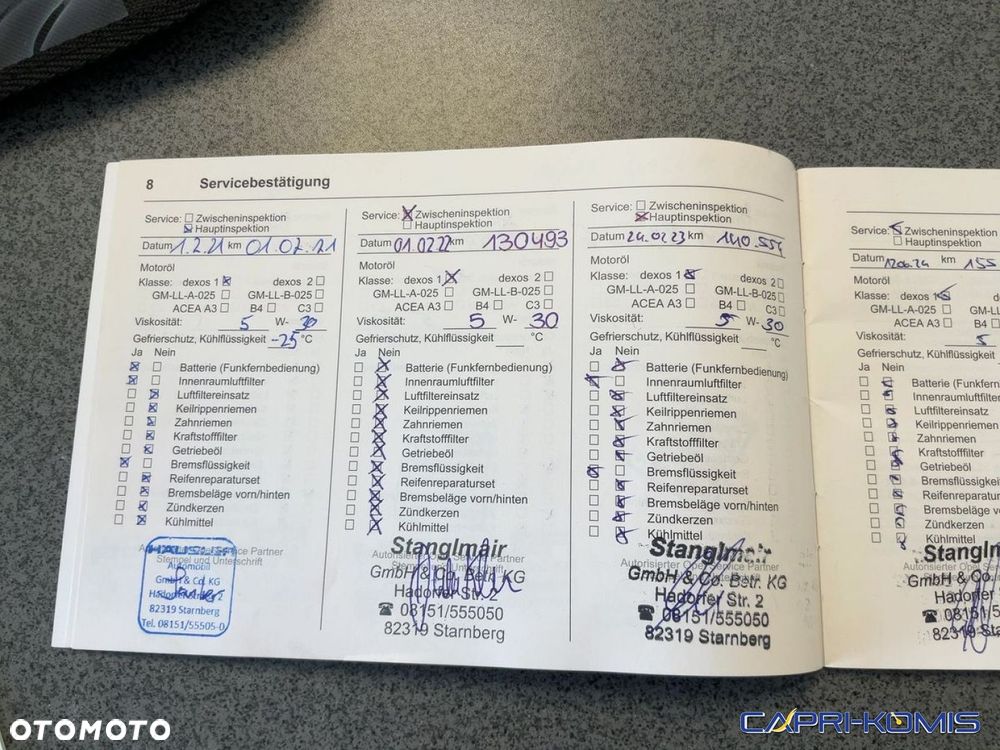 8 Servicebestätigung
Service: Zwischeninspektion
Hauptinspektion
Datum 1.2.21 km 01.02.21
Motoröl
Klasse: dexos 1 dexos 2
GM-LL-A-025 GM-LL-B-025
ACEA A3 B4 C3
Viskosität: 5 W- 30
Gefrierschutz, Kühlflüssigkeit -25 °C
Ja Nein
Batterie (Funkfernbedienung)
Innenraumluftfilter
Luftfiltereinsatz
Keilrippenriemen
Zahnriemen
Kraftstofffilter
Getriebeöl
Bremsflüssigkeit
Reifenreparaturset
Bremsbeläge vorn/hinten
Zündkerzen
Kühlmittel
Stempel und Unterschrift
Automobil
GmbH & Co. KG
82319 Starnberg
Tel. 08151/55505-0
Service: Zwischeninspektion
Hauptinspektion
Datum 01.02.22 km 130493
Motoröl
Klasse: dexos 1 dexos 2
GM-LL-A-025 GM-LL-B-025
ACEA A3 B4 C3
Viskosität: 5 W- 30
Gefrierschutz, Kühlflüssigkeit °C
Ja Nein
Batterie (Funkfernbedienung)
Innenraumluftfilter
Luftfiltereinsatz
Keilrippenriemen
Zahnriemen
Kraftstofffilter
Getriebeöl
Bremsflüssigkeit
Reifenreparaturset
Bremsbeläge vorn/hinten
Zündkerzen
Kühlmittel
Stanglmair
GmbH & Co. Betr. KG
Hadorfer Str. 2
☎ 08151/555050
82319 Starnberg
Service: Zwischeninspektion
Hauptinspektion
Datum 24.02.23 km 140.554
Motoröl
Klasse: dexos 1 dexos 2
GM-LL-A-025 GM-LL-B-025
ACEA A3 B4 C3
Viskosität: 5 W- 30
Gefrierschutz, Kühlflüssigkeit °C
Ja Nein
Batterie (Funkfernbedienung)
Innenraumluftfilter
Luftfiltereinsatz
Keilrippenriemen
Zahnriemen
Kraftstofffilter
Getriebeöl
Bremsflüssigkeit
Reifenreparaturset
Bremsbeläge vorn/hinten
Zündkerzen
Kühlmittel
Stanglmair
GmbH & Co. Betr. KG
Hadorfer Str. 2
☎ 08151/555050
82319 Starnberg
Service: Zwischeninspektion
Hauptinspektion
Datum km 155
Motoröl
Klasse: dexos 1
GM-LL-A-025 GM-LL
ACEA A3 B4
Viskosität: 5
Gefrierschutz, Kühlflüssigkeit
Ja Nein
Batterie (Funkfernb
Innenraumluftfilter
Luftfiltereinsatz
Keilrippenriemen
Zahnriemen
Kraftstofffilter
Getriebeöl
Bremsflüssigkeit
Reifenreparaturset
Bremsbeläge vorn
Zündkerzen
Kühlmittel
Stanglm
GmbH & Co.
Hadorfer
☎ 08151/5
82319 Starn
OTOMOTO
CAPRI-KOMIS